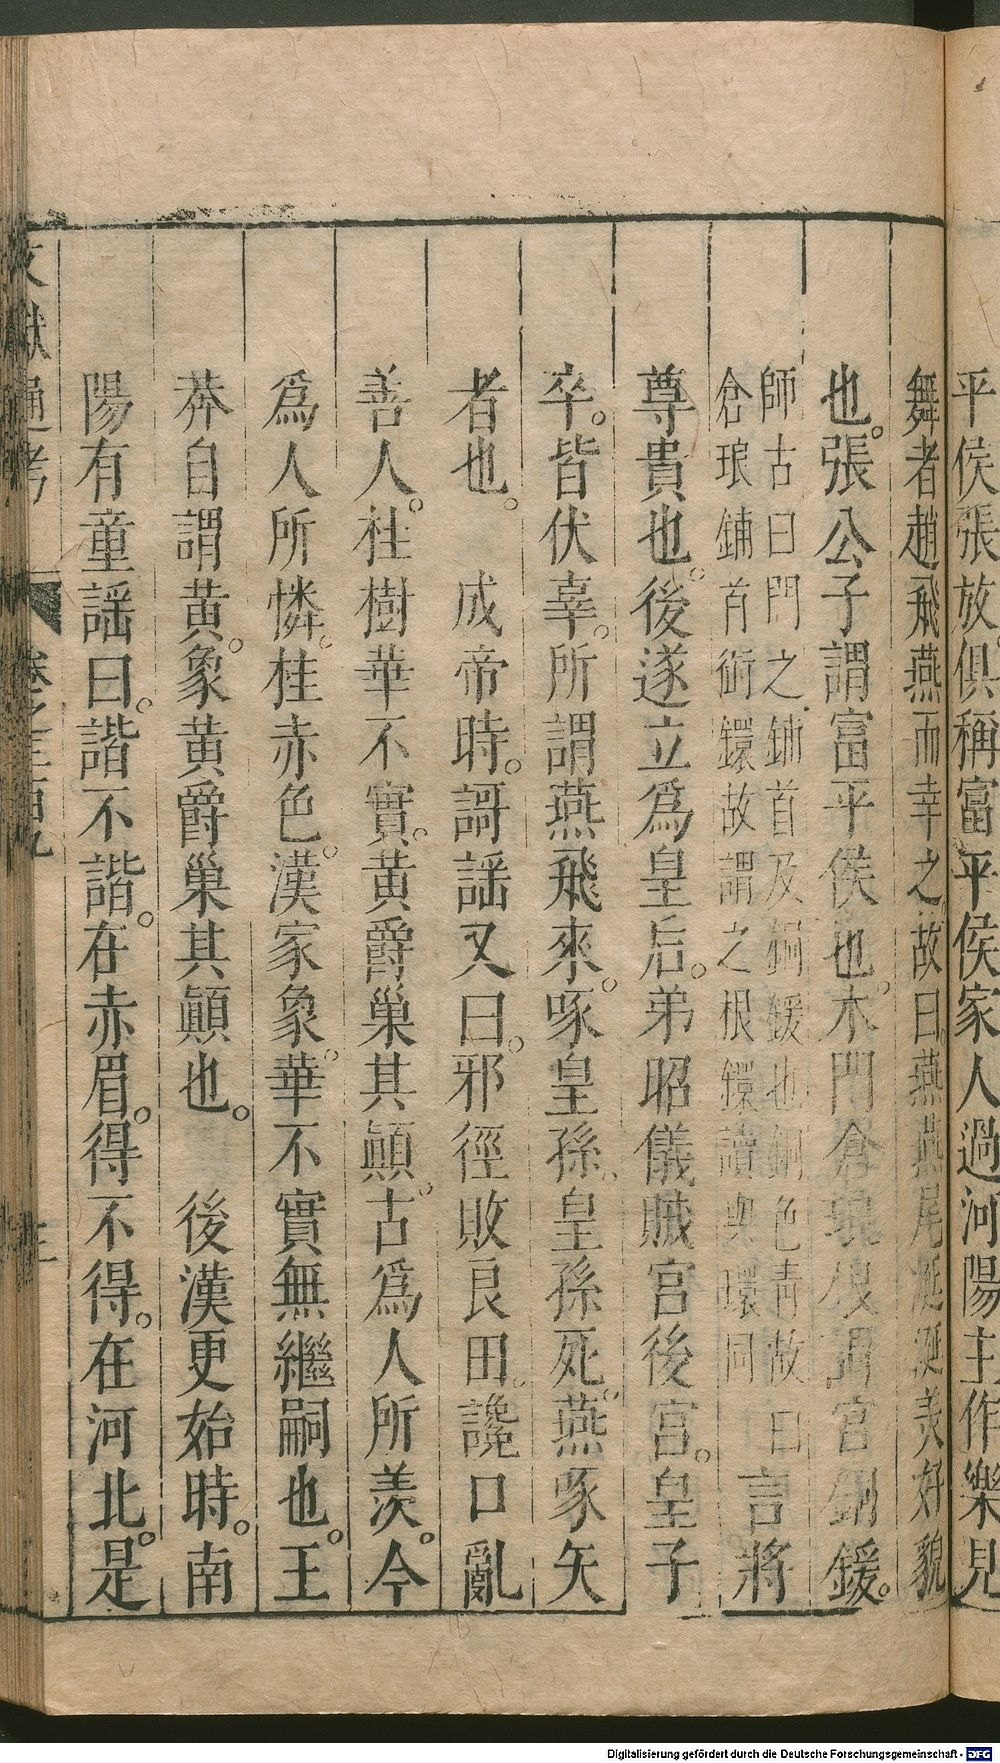 平侯張放俱稱富平侯家人過河陽主作樂見
舞者趙飛燕而幸之故曰燕燕尾涎涎美好貌
也。張公子謂富平侯也。木門倉琅根謂宮銅鍰。
師古曰門之鋪首及銅鍰也銅色青故曰
倉琅鋪首銜鐶故謂之根鐶讀與環同
言將
尊貴也。後遂立為皇后。弟昭儀賊宮後宮。皇子
卒。皆伏辜。所謂燕飛來。啄皇孫。皇孫死。燕啄矢
者也。 成帝時。謌謡又曰。邪徑敗良田。讒口亂
善人。桂樹華不實。黄爵巢其顚。古爲人所羨。今
爲人所憐。桂赤色。漢家象。華不實無繼嗣也。王
莽自謂黄。象黄爵巢其顚也。 後漢更始時。南
陽有童謡曰。諧不諧。在赤眉。得不得。在河北。是
文獻通考
卷之三百九
Digitalisierung gefördert durch die Deutsche Forschungsgemeinschaft - DFG